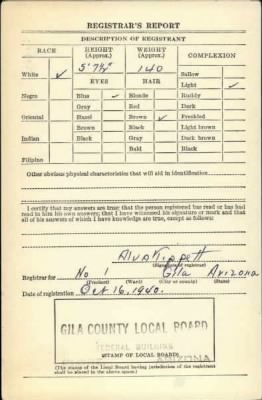 REGISTRAR'S REPORT
DESCRIPTION OF REGISTRANT
RACE HEIGHT (Approx.) WEIGHT (Approx.) COMPLEXION
5' 7½" 140 Sallow
White ✓ EYES HAIR Light ✓
Negro Blue ✓ Blonde Ruddy
Gray Red Dark
Oriental Hazel Brown ✓ Freckled
Brown Black Light brown
Indian Black Gray Dark brown
Bald Black
Filipino
Other obvious physical characteristics that will aid in identification
I certify that my answers are true; that the person registered has read or has had
read to him his own answers; that I have witnessed his signature or mark and that
all of his answers of which I have knowledge are true, except as follows:
Alva Tippett
(Signature of registrar)
Registrar for No 1 Gila Arizona
(Precinct) (Ward) (City or county) (State)
Date of registration Oct 16, 1940.
GILA COUNTY LOCAL BOARD
FEDERAL BUILDING
ARIZONA
STAMP OF LOCAL BOARD
(The stamp of the Local Board having jurisdiction of the registrant
shall be placed in the above space.)